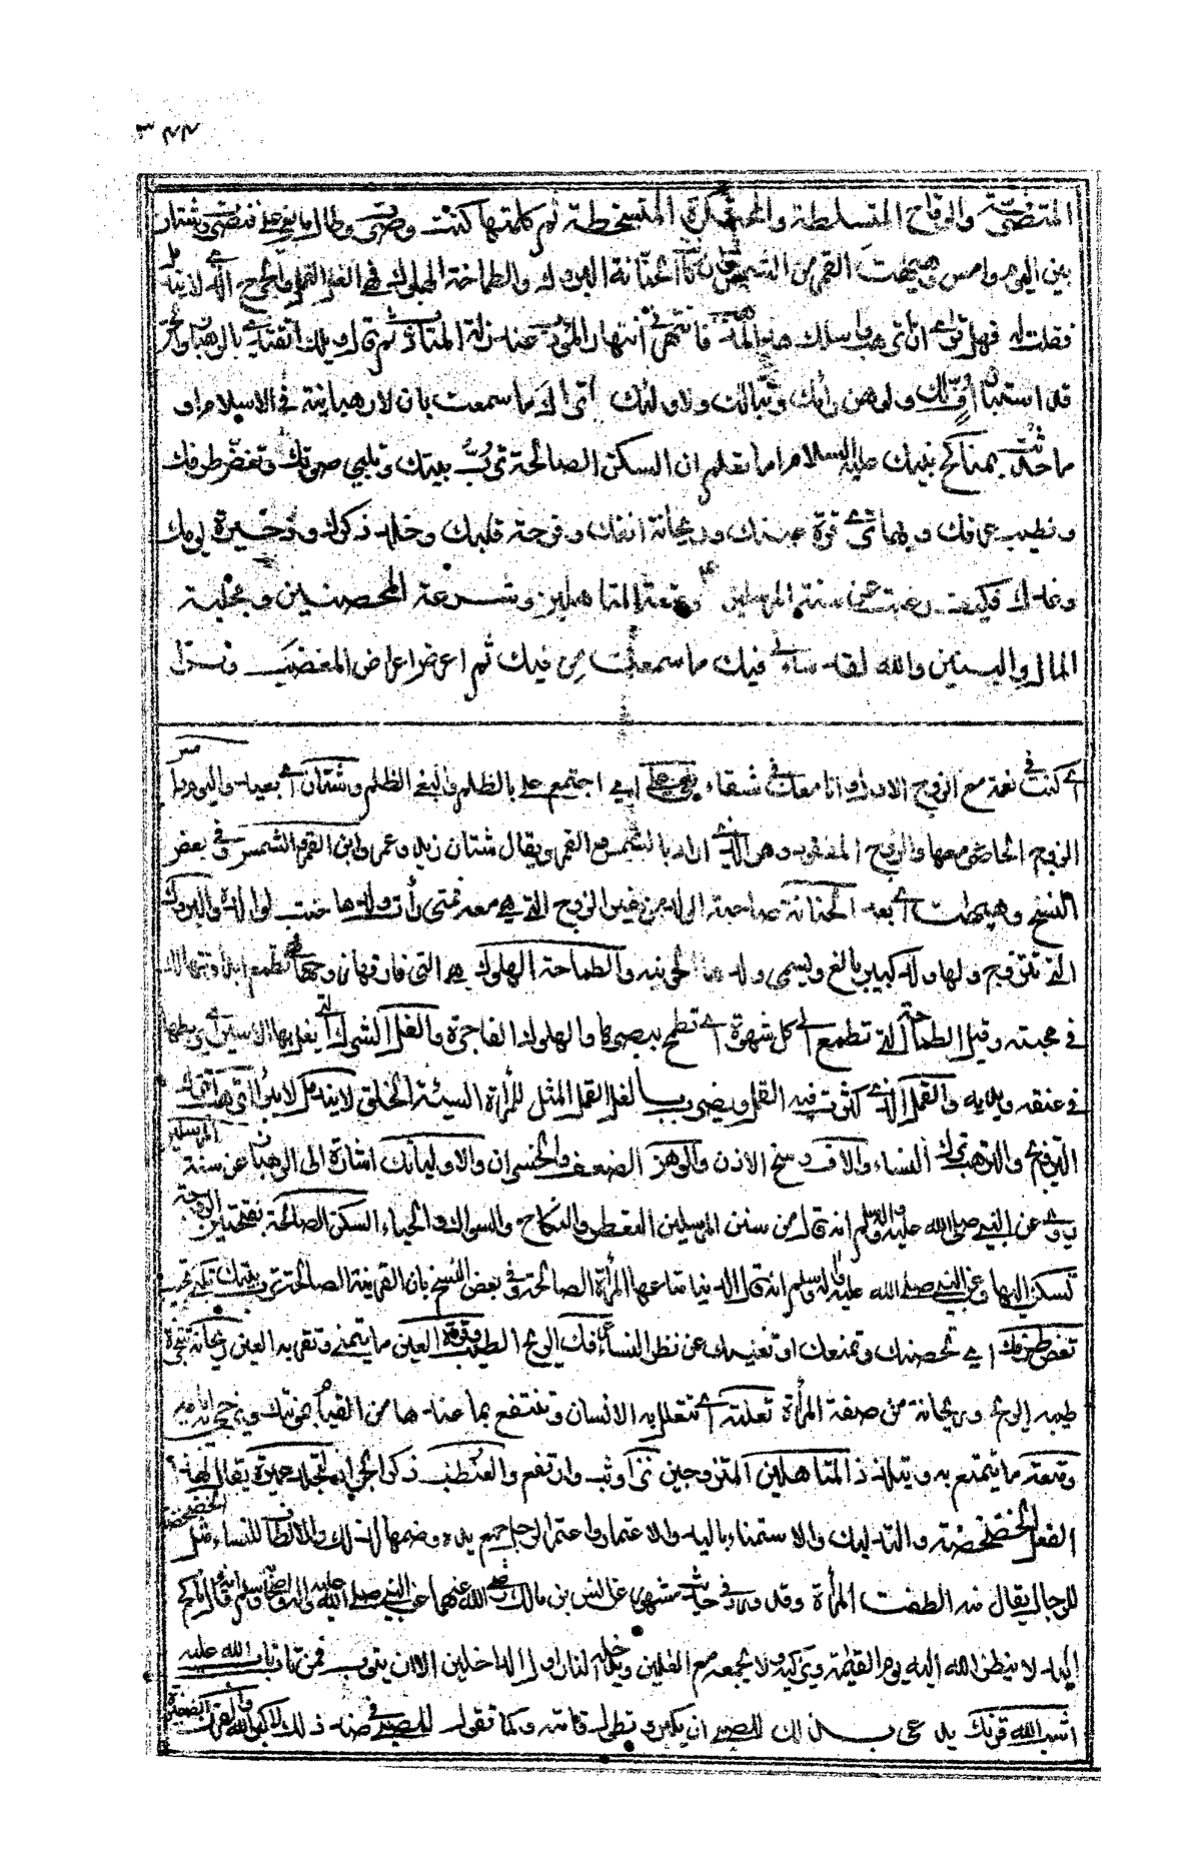 ٣٤٤
المتضجرة والوقاح المتسلطة والمحتكرة المتسخطة ثم كلمتها كنت وصرت وطال ما بغي علي فنصرت وشتان
بين اليوم وامس وهيهات القمر من الشمس وان كانت الحنانة البروك والطماحة الهلوك فهي الغل القمل والجرح الذي لا يندمل
فقلت له فهل ترى ان اترهب واسلك هذا المذهب فانتهرني انتهار المؤدب عند زلة المتأدب ثم قال ويلك اتقتدي بالرهبان والحق
قد استبان اف لك ولوهن رأيك وتبا لك ولاولئك اتراك ما سمعت بان لا رهبانية في الاسلام او
ما حدثت بمناكح نبيك عليه السلام اما تعلم ان السكن الصالحة تربّ بيتك وتلبي صوتك وتغض طرفك
وتطيب عرفك وبها ترى قرة عينك وريحانة انفك وفرحة قلبك وخلد ذكرك وذخيرة يومك
وغدك فكيف رغبت عن سنة المرسلين ومتعة المتاهلين وشرعة المحصنين ومجلبة
المال والبنين والله لقد ساءني فيك ما سمعت من فيك ثم اعرض اعراض المغضب ونزا
اي كنت في نعمة مع الزوج الاول وانا معك في شقاء بغي علي اي اجتمع علي بالظلم والبغي الظلم وشتان اي بعيد واليوم
الزوج الحاضر معها والزوج المفقود وهو الذي اراد بالشمس مع القمر ويقال شتان زيد وعمرو ابن القمر الشمس وفي بعض
النسخ وهيهات اي بعد الحنانة صاحبة الولد من غير الزوج الذي هي معه فمتى رأت ولدها حنت لوالده والبروك
التي تتزوج ولها ولد كبير بالغ ويسمى ولدها الحرنبه والطماحة الهلوك هي التي فارقها زوجها تطمع
في محبته وقيل الطماحة التي تطمع الى كل شهوة اي تطمح ببصرها والهلوك الفاجرة والغل الشراك الذي يغل بها الاسير اي يربطها
في عنقه ويديه والقمل الذي كثرت فيه القمل ويضرب بالغل القمل المثل للمرأة السيئة الخلق لا يندمل لا يبرأ
الترفع والترهب ترك النساء والاف وسخ الاذن والوهن الضعف والخسران والاولئك اشارة الى الرهبان عن سنة المرسلين
روي عن النبي صلى الله عليه وآله وسلم انه قال من سنن المرسلين التعطر والنكاح والسواك والحياء السكن الصالحة بفتحتين الزوجة
تسكن اليها وعن النبي صلى الله عليه وآله وسلم انه قال الدنيا متاعها المرأة الصالحة وفي بعض النسخ بان القرينة الصالحة ترب بيتك
تغض طرفك اي تحصنك وتمنعك او تغنيك عن نظر النساء عرفك الريح الطيب وقرة العين ما يتمنى وتقر به العين ريحانة
طيبة الريح وريحانة من صفة المرأة تعلته اي تتعلل به الانسان وتنتفع بما عندها من القيام بمؤنتك
ومتعة ما يتمتع به ويتلذذ المتاهلين المتزوجين نزا وثب وارتفع والعنظب ذكر الجراد جلد عميرة يقال لهذا
الفعل الخضخضة والتدليك والاستمناء باليد والاعتماد واعتمر الرجل جمع يده وضمها لذلك والالطاف للنساء مثل الخضخضة
للرجال يقال منه الطفت المرأة وقد ورد في حديث مشهور عن انس بن مالك رضي الله عنهما عن النبي صلى الله عليه وآله واصحابه وسلم انه قال ناكح
اليد لا ينظر الله اليه يوم القيامة ولا يزكيه ولا يجمعه مع العلمين ويدخله النار اول الداخلين الا ان يتوب فمن تاب تاب الله عليه
اشب الله قرنك يدعى بذلك للصبي ان يكبر وتطول قامته وكما تقول للصبي في ضد ذلك لا كبر الله